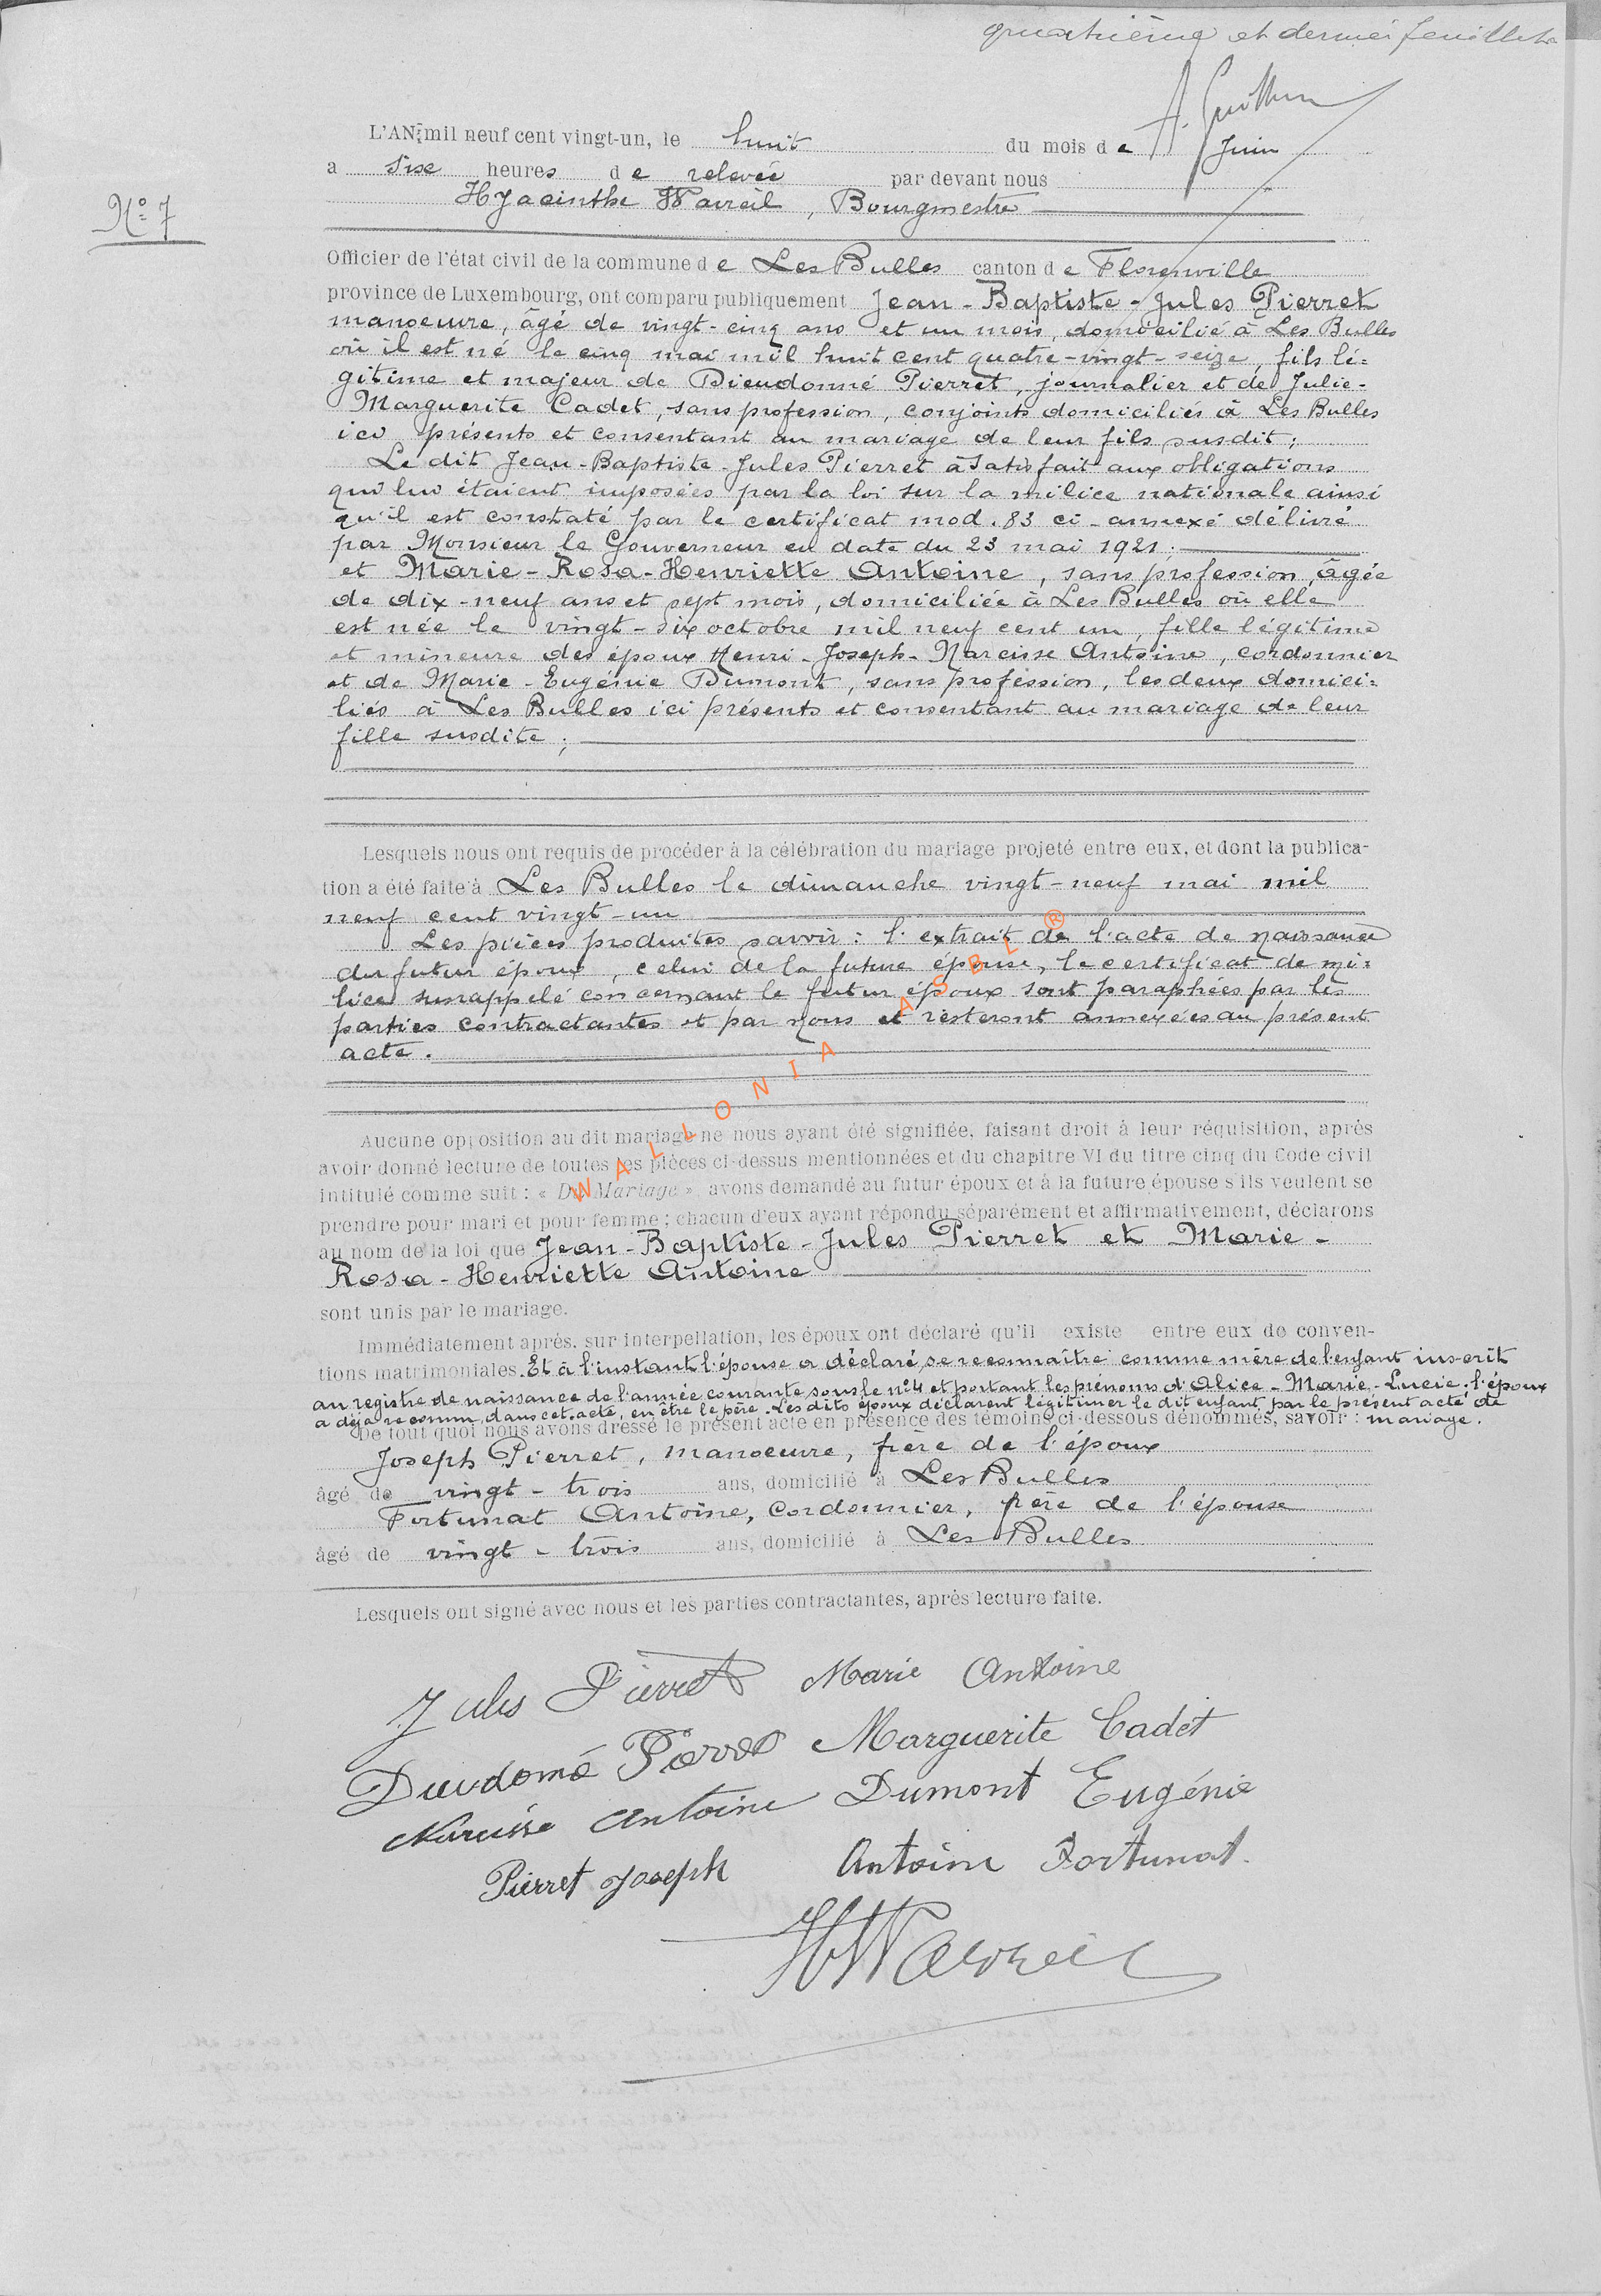 quatrième et dernier feuillet
A. Guillaum
N° 7
L'AN mil neuf cent vingt-un, le huit du mois de Juin
a sise heures de relevée par devant nous
Hyacinthe Wavreil, Bourgmestre
Officier de l'état civil de la commune de Les Bulles canton de Florenville
province de Luxembourg, ont comparu publiquement Jean-Baptiste-Jules Pierret
manoeuvre, âgé de vingt-cinq ans et un mois, domicilié à Les Bulles
où il est né le cinq mai mil huit cent quatre-vingt-seize, fils lé=
gitime et majeur de Dieudonné Pierret, journalier et de Julie-
Marguerite Cadet, sans profession, conjoints domiciliés à Les Bulles
ici présents et consentant au mariage de leur fils susdit;
Le dit Jean-Baptiste-Jules Pierret à satisfait aux obligations
qui lui étaient imposées par la loi sur la milice nationale ainsi
qu'il est constaté par le certificat mod. 83 ci-annexé délivré
par Monsieur le Gouverneur en date du 23 mai 1921;
et Marie-Rosa-Henriette Antoine, sans profession, âgée
de dix-neuf ans et sept mois, domiciliée à Les Bulles où elle
est née le vingt-six octobre mil neuf cent un, fille légitime
et mineure des époux Henri-Joseph-Narcisse Antoine, cordonnier
et de Marie-Eugénie Dumont, sans profession, les deux domici=
liés à Les Bulles ici présents et consentant au mariage de leur
fille susdite;
Lesquels nous ont requis de procéder à la célébration du mariage projeté entre eux, et dont la publica-
tion a été faite à Les Bulles le dimanche vingt-neuf mai mil
neuf cent vingt-un
Les pièces produites savoir: l'extrait de l'acte de naissance
du futur époux, celui de la future épouse, le certificat de mi=
lice susrappelé concernant le futur époux sont paraphées par les
parties contractantes et par nous et resteront annexées au présent
acte.
Aucune opposition au dit mariage ne nous ayant été signifiée, faisant droit à leur réquisition, après
avoir donné lecture de toutes les pièces ci-dessus mentionnées et du chapitre VI du titre cinq du Code civil
intitulé comme suit: « Du Mariage », avons demandé au futur époux et à la future épouse s'ils veulent se
prendre pour mari et pour femme; chacun d'eux ayant répondu séparément et affirmativement, déclarons
au nom de la loi que Jean-Baptiste-Jules Pierret et Marie-
Rosa-Henriette Antoine
sont unis par le mariage.
Immédiatement après, sur interpellation, les époux ont déclaré qu'il existe entre eux de conven-
tions matrimoniales. Et à l'instant l'épouse a déclaré se reconnaître comme mère de l'enfant inscrit
au registre de naissance de l'année courante sous le n° 4 et portant les prénoms d'Alice-Marie-Lucie; l'époux
a déjà reconnu, dans cet acte, en être le père. Les dits époux déclarent légitimer le dit enfant par le présent acte de
mariage.
De tout quoi nous avons dressé le présent acte en présence des témoins ci-dessous dénommés, savoir:
Joseph Pierret, manoeuvre, frère de l'époux
âgé de vingt-trois ans, domicilié à Les Bulles
Fortunat Antoine, cordonnier, frère de l'épouse
âgé de vingt-trois ans, domicilié à Les Bulles
Lesquels ont signé avec nous et les parties contractantes, après lecture faite.
Jules Pierret Marie Antoine
Dieudonné Pierret Marguerite Cadet
Narcisse Antoine Dumont Eugénie
Pierret Joseph Antoine Fortunat.
H Wavreil
WALLONIA ASBL ®